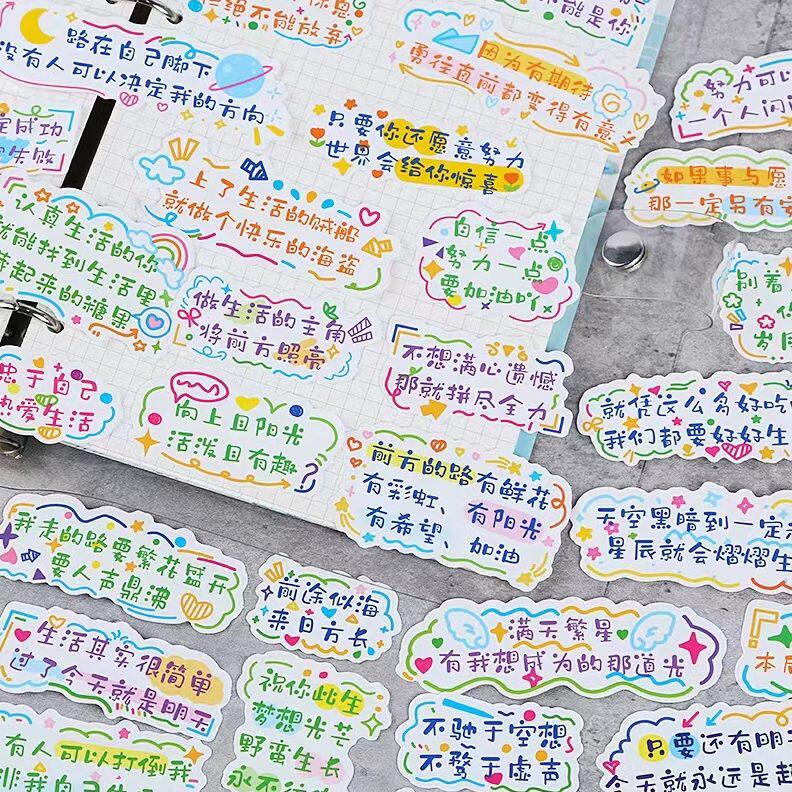 绝不能放弃
不能是你
路在自己脚下
没有人可以决定我的方向
因为有期待
勇往直前都变得有意义
努力可以
一个人闪闪
定成功
失败
只要你还愿意努力
世界会给你惊喜
如果事与愿
那一定另有安
上了生活的贼船
就做个快乐的海盗
认真生活的你
就能找到生活里
藏起来的糖果
自信一点
努力一点
要加油吖
别着
你
岁月
做生活的主角
将前方照亮
不想满心遗憾
那就拼尽全力
忠于自己
热爱生活
向上且阳光
活泼且有趣
就凭这么多好吃
我们都要好好生
前方的路有鲜花
有彩虹、有阳光
有希望、加油
天空黑暗到一定
星辰就会熠熠生
我走的路要繁花盛开
要人声鼎沸
前途似海
来日方长
满天繁星
有我想成为的那道光
生活其实很简单
过了今天就是明天
祝你此生
梦想光芒
野蛮生长
永不
本
不驰于空想
不骛于虚声
只要还有明
今天就永远是起
有人可以打倒我
非我自己